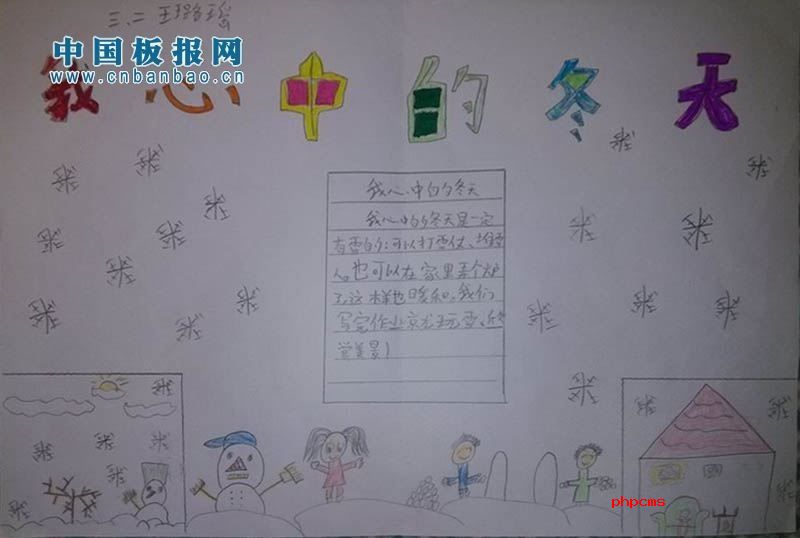 三、二 王璐瑶
中国板报网
www.cnbanbao.cn
我心中的冬天
我心中的冬天
我心中的冬天是一定
有雪的:可以打雪仗、堆雪
人。也可以在家里弄个炉
子,这样也暖和。我们
写完作业京尤玩雪、
堂美景!
phpcms